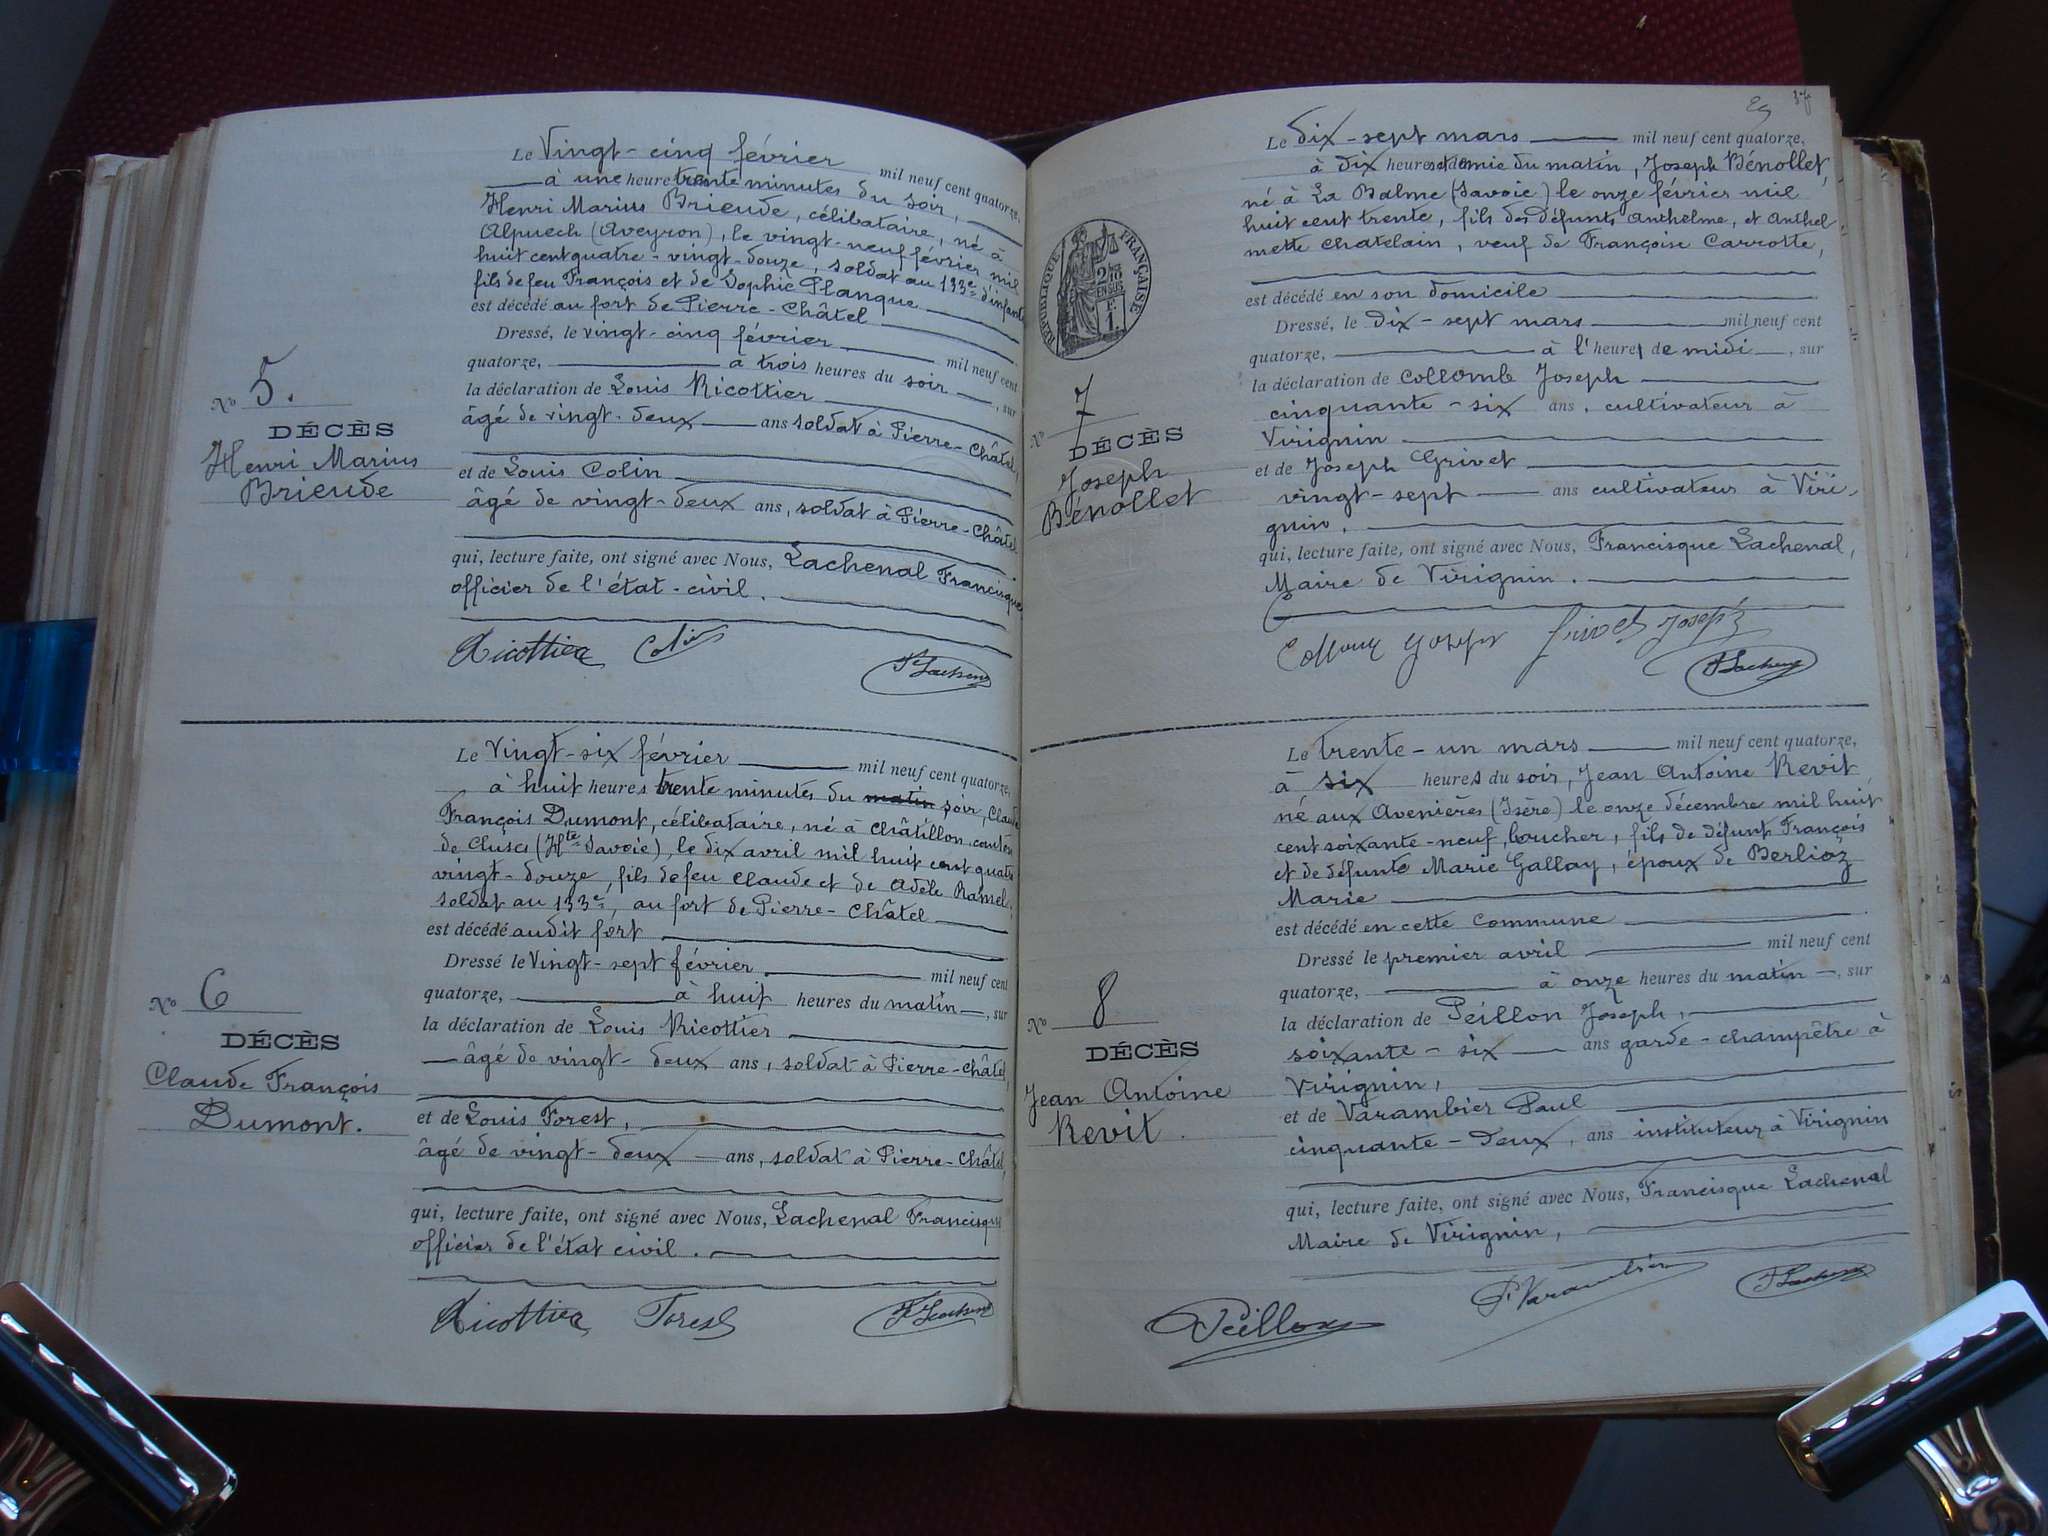 Le Vingt-cinq février mil neuf cent quatorze,
à une heure trente minutes du soir,
Henri Marius Brieude, célibataire, né à
Alpuech (Aveyron), le vingt-neuf février mil
huit cent quatre-vingt-douze, soldat au 133e d'infant
fils de feu François et de Sophie Planque
est décédé au fort de Pierre-Châtel
Dressé, le vingt-cinq février mil neuf cent
quatorze, à trois heures du soir, sur
la déclaration de Louis Ricottier
âgé de vingt-deux ans soldat à Pierre-Châtel,
et de Louis Colin
âgé de vingt-deux ans, soldat à Pierre-Châtel
qui, lecture faite, ont signé avec Nous, Lachenal Francisque
officier de l'état-civil.
No 5.
DÉCÈS
Henri Marius
Brieude
Ricottier Colin
F Lachenal
Le Vingt-six février mil neuf cent quatorze,
à huit heures trente minutes du matin soir, Claude
François Dumont, célibataire, né à Châtillon, canton
de Cluses (Hte Savoie), le dix avril mil huit cent quatre
vingt-douze, fils de feu Claude et de Adèle Ramel,
soldat au 133e, au fort de Pierre-Châtel
est décédé audit fort
Dressé le Vingt-sept février mil neuf cent
quatorze, à huit heures du matin, sur
la déclaration de Louis Ricottier
âgé de vingt-deux ans, soldat à Pierre-Châtel,
et de Louis Forest,
âgé de vingt-deux ans, soldat à Pierre-Châtel,
qui, lecture faite, ont signé avec Nous, Lachenal Francisque
officier de l'état civil.
No 6
DÉCÈS
Claude François
Dumont.
Ricottier Forest
F Lachenal
37
Le dix-sept mars mil neuf cent quatorze,
à dix heures et demie du matin, Joseph Bénollet,
né à La Balme (Savoie) le onze février mil
huit cent trente, fils des défunts Anthelme, et Anthel-
mette Chatelain, veuf de Françoise Carrotte,
est décédé en son domicile
Dressé, le dix-sept mars mil neuf cent
quatorze, à l'heure de midi, sur
la déclaration de Collomb Joseph
cinquante-six ans, cultivateur à
Virignin
et de Joseph Grivet
vingt-sept ans cultivateur à Viri-
gnin,
qui, lecture faite, ont signé avec Nous, Francisque Lachenal,
Maire de Virignin.
RÉPUBLIQUE FRANÇAISE
2/10 EN SUS
F
1.
No 7
DÉCÈS
Joseph
Bénollet
Collomb Joseph Grivet Joseph
F Lachenal
Le trente-un mars mil neuf cent quatorze,
à six heures du soir, Jean Antoine Revit
né aux Avenières (Isère) le onze décembre mil huit
cent soixante-neuf, boucher, fils de défunt François
et de défunte Marie Gallay, époux de Berlioz
Marie
est décédé en cette commune
Dressé le premier avril mil neuf cent
quatorze, à onze heures du matin, sur
la déclaration de Peillon Joseph,
soixante-six ans garde-champêtre à
Virignin,
et de Varambier Paul
cinquante-deux, ans instituteur à Virignin
qui, lecture faite, ont signé avec Nous, Francisque Lachenal
Maire de Virignin,
No 8
DÉCÈS
Jean Antoine
Revit.
Peillon P. Varambier F Lachenal